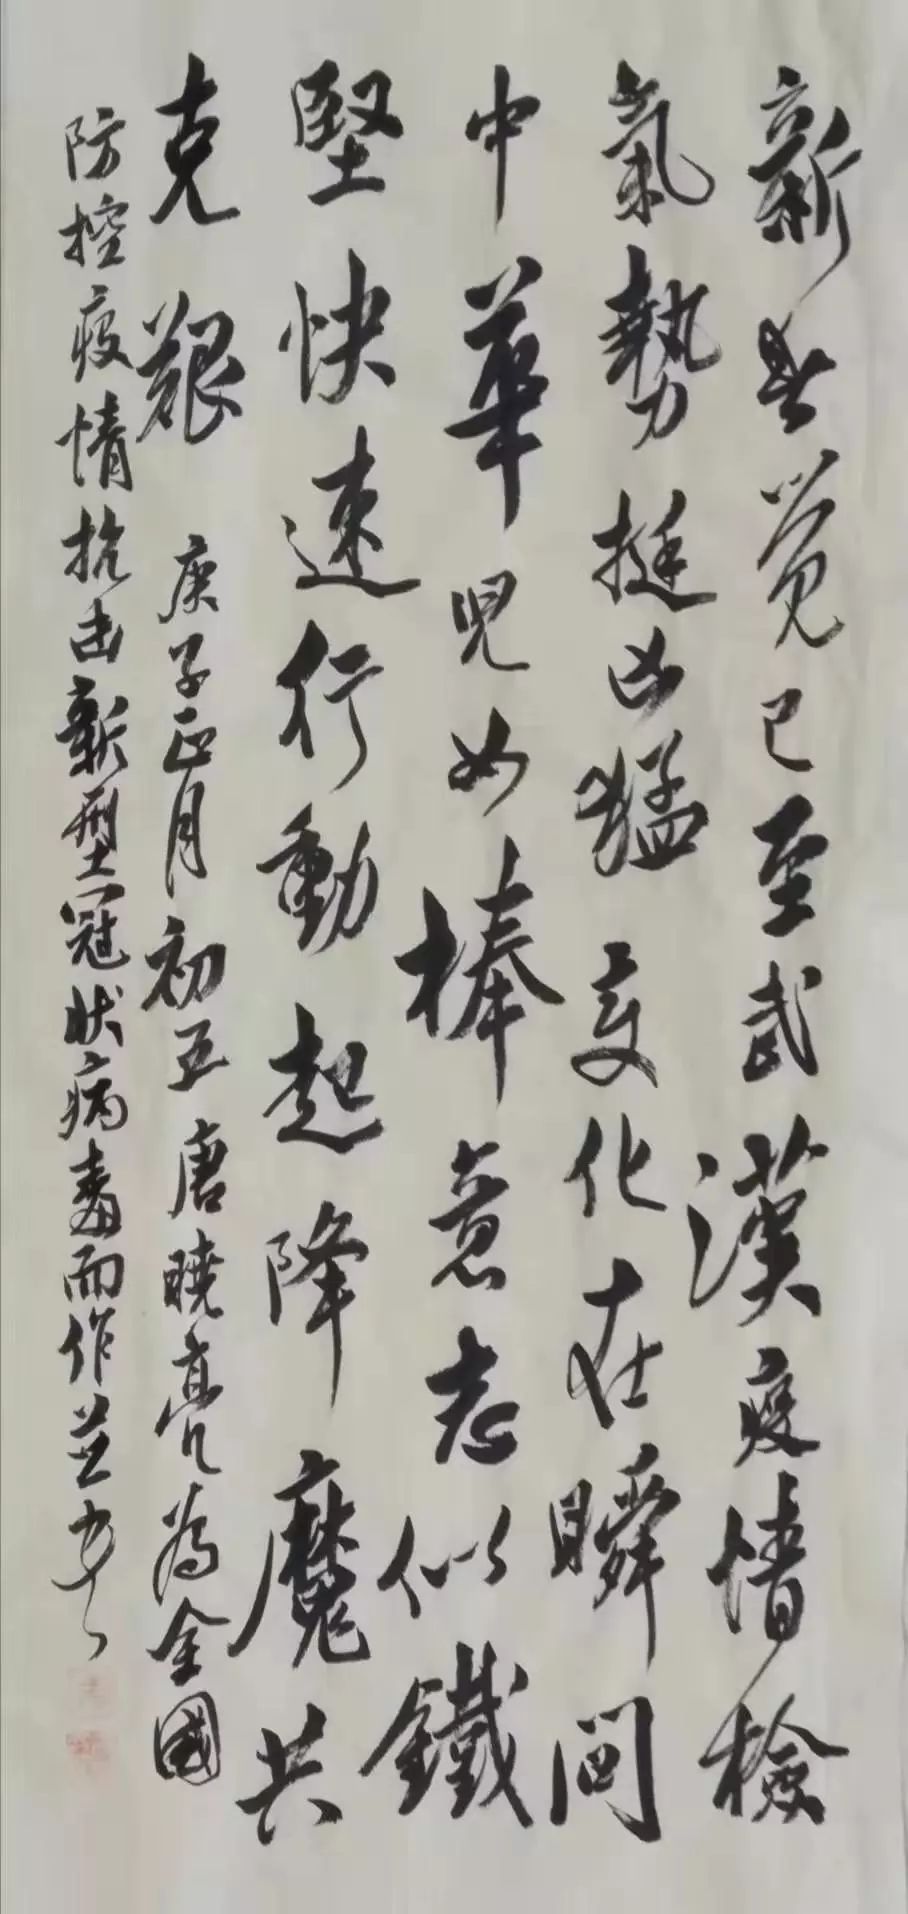 新春觉已至武漢疫情檢
氣勢挺凶猛变化在瞬间
中華児女棒意志似鐵
堅快速行動起降魔共
克艰 庚子正月初五唐曉亮為全國
防控疫情抗击新型冠状病毒而作并书